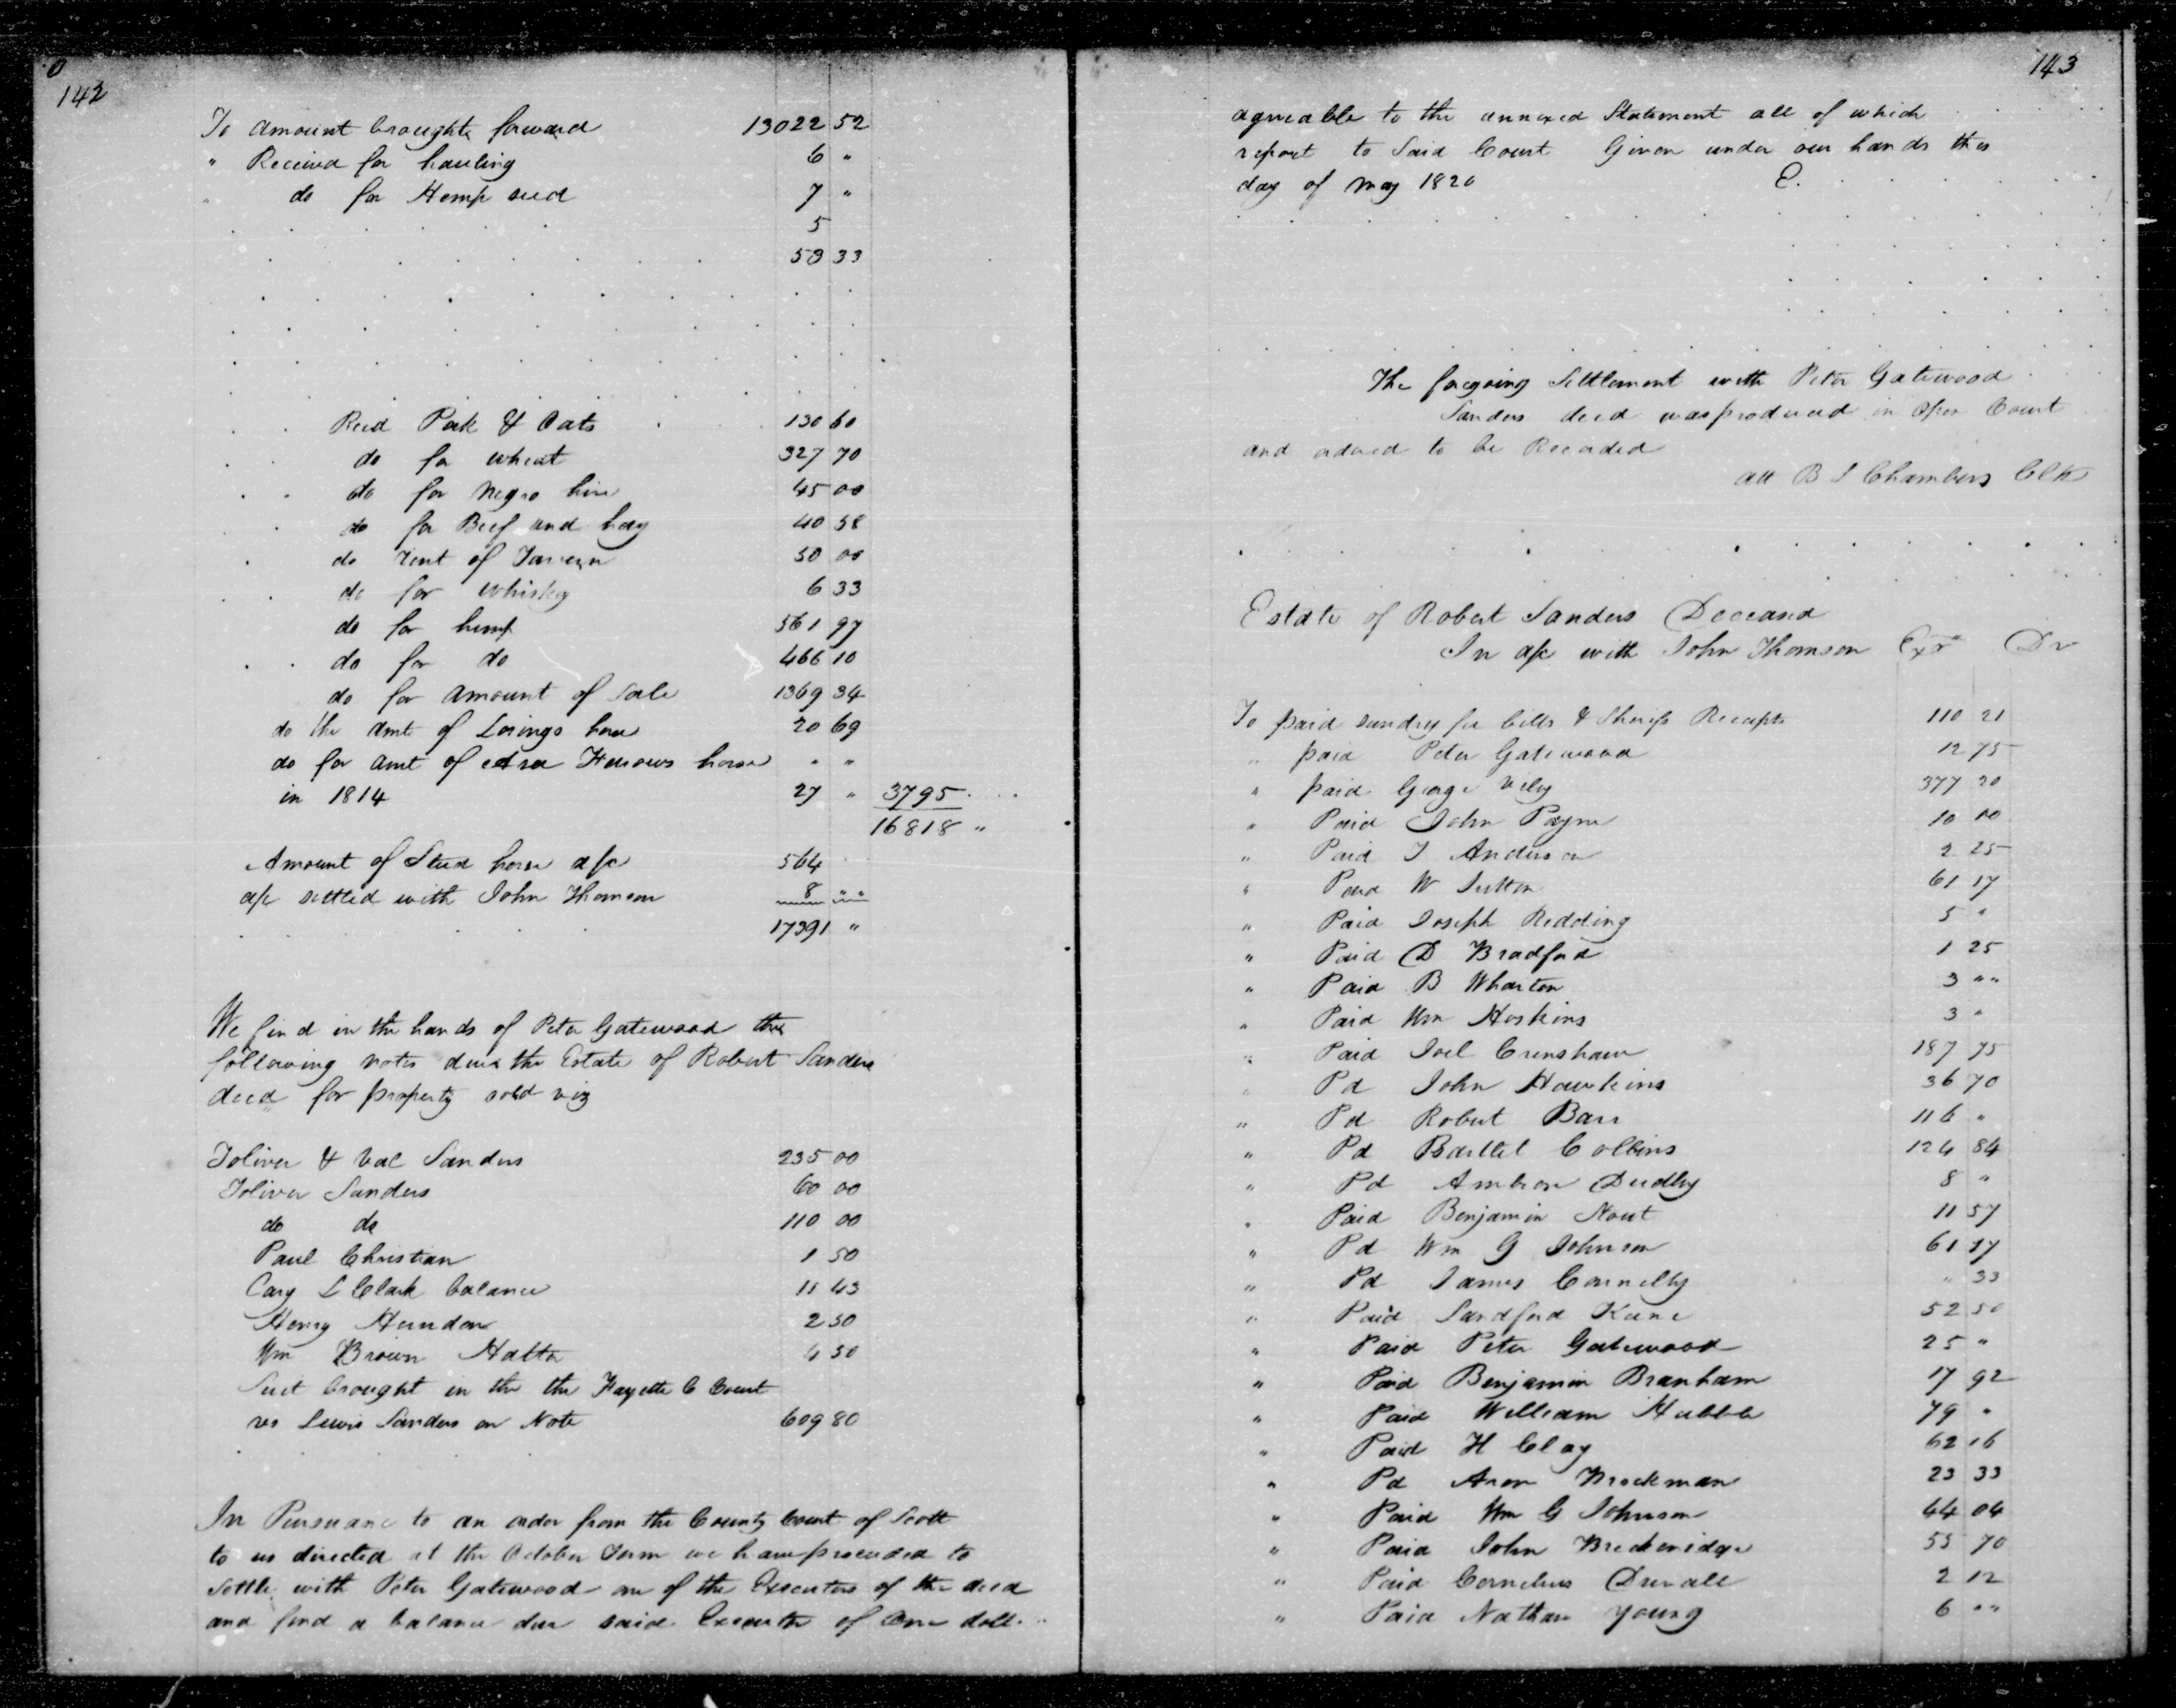 0
142
To amount brought forward 13022 52
" Received for hauling 6 "
" do for Hemp seed 7 "
5
53 33
Recd Pork & Oats 130 60
do for wheat 327 70
do for Negro hire 45 00
do for Beef and hay 40 58
do rent of Tavern 50 00
do for whiskey 6 33
do for hemp 561 97
do for do 466 10
do for amount of Sale 1369 34
do the amt of Lorings horse 20 69
do for amt of Asa horse " "
in 1814 27 " 3795
16818 "
Amount of Stud horse a/c 564
a/c settled with John Thomson 8 " "
17391 "
We find in the hands of Peter Gatewood the
following notes due the Estate of Robert Sanders
decd for property sold viz
Toliver & Val Sanders 235 00
Toliver Sanders 60 00
do do 110 00
Paul Christian 1 50
Cary L Clark balance 11 43
Henry Herndon 2 50
Wm Brown Hatter 4 50
Suit brought in the the Fayette C Court
vs Lewis Sanders on Note 609 80
In Pursuance to an order from the County Court of Scott
to us directed at the October Term we have proceeded to
Settle with Peter Gatewood one of the Executors of the decd
and find a balance due said Executor of One doll.
143
agreeable to the annexed Statement all of which
report to Said Court Given under our hands this
day of may 1820 E.
The foregoing Settlement with Peter Gatewood
Sanders decd was produced in Open Court
and ordered to be Recorded
att B S Chambers Clk
Estate of Robert Sanders Deceased
In a/c with John Thomson Exr Dr
To paid sundry fee bills & Sheriffs Receipts 110 21
" paid Peter Gatewood 12 75
" paid George Viley 377 20
" Paid John Payne 10 00
" Paid J Anderson 2 25
" Paid W Sutton 61 17
" Paid Joseph Redding 5 "
" Paid D Bradford 1 25
" Paid B Wharton 3 " "
" Paid Wm Hoskins 3 "
" Paid Joel Crenshaw 187 75
" Pd John Hawkins 36 70
" Pd Robert Barr 116 "
" Pd Bartlet Collins 124 84
" Pd Ambrose Dudley 8 "
" Paid Benjamin Stout 11 57
" Pd Wm G Johnson 61 37
" Pd James Connelly " 33
" Paid Sandford Keene 52 50
" Paid Peter Gatewood 25 "
" Paid Benjamin Branham 17 92
" Paid William Hubble 79 "
" Paid H Clay 62 16
" Pd Aron Brockman 23 33
" Paid Wm G Johnson 44 04
" Paid John Breckenridge 55 70
" Paid Cornelius Duvall 2 12
" Paid Nathan Young 6 " "